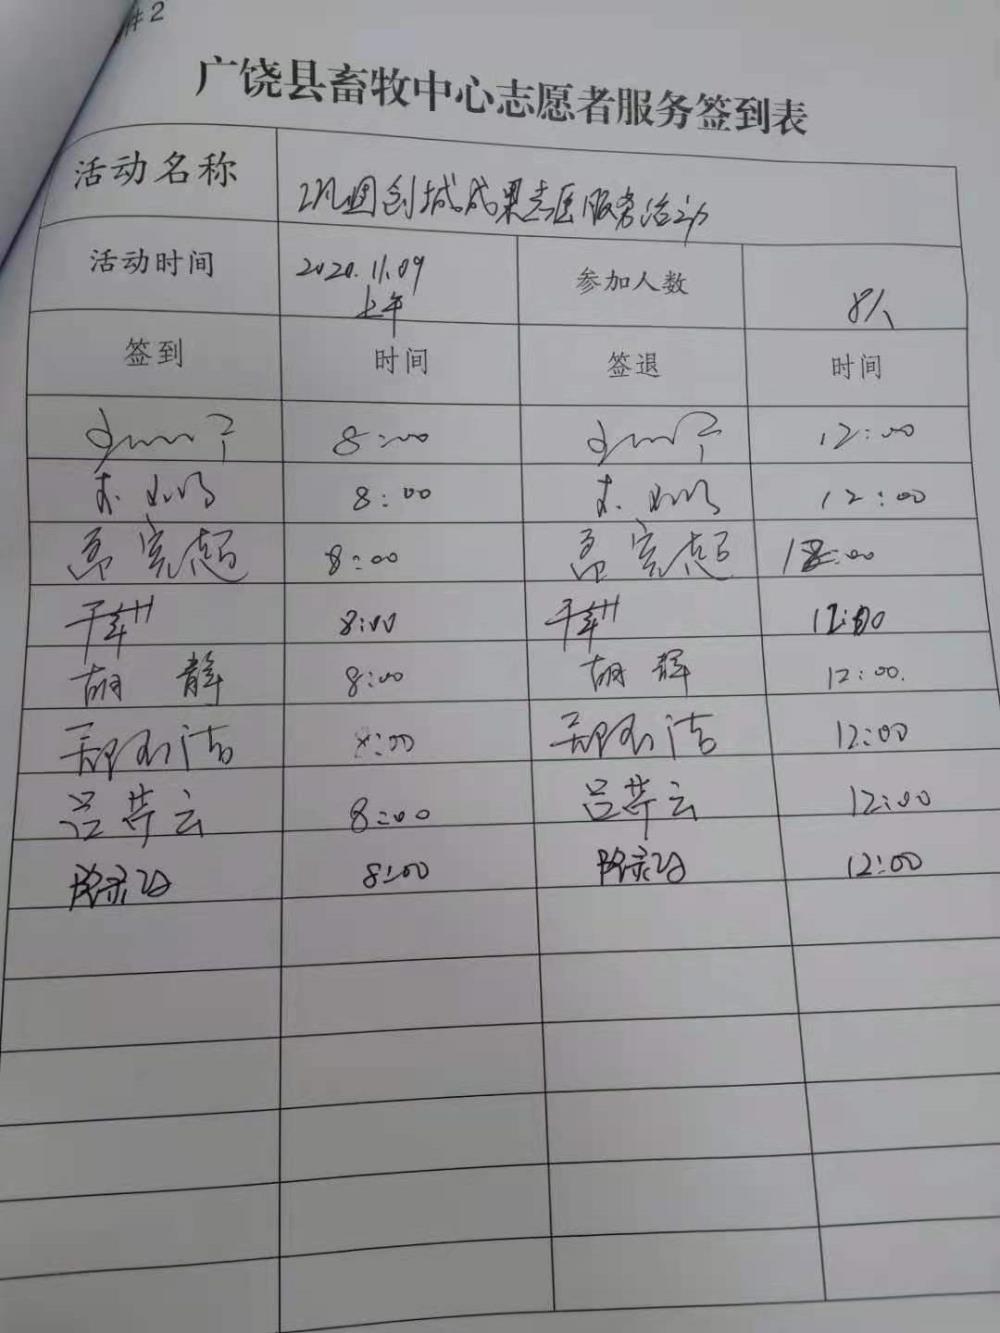 #2
广饶县畜牧中心志愿者服务签到表
活动名称 巩固创城成果志愿服务活动
活动时间 2020.11.09 上午 参加人数 8人
签到 时间 签退 时间
8:00 12:00
8:00 12:00
8:00 12:00
8:00 12:00
胡静 8:00 胡静 12:00.
郑 洁 8:00 郑 洁 12:00
吕芹云 8:00 吕芹云 12:00
8:00 12:00